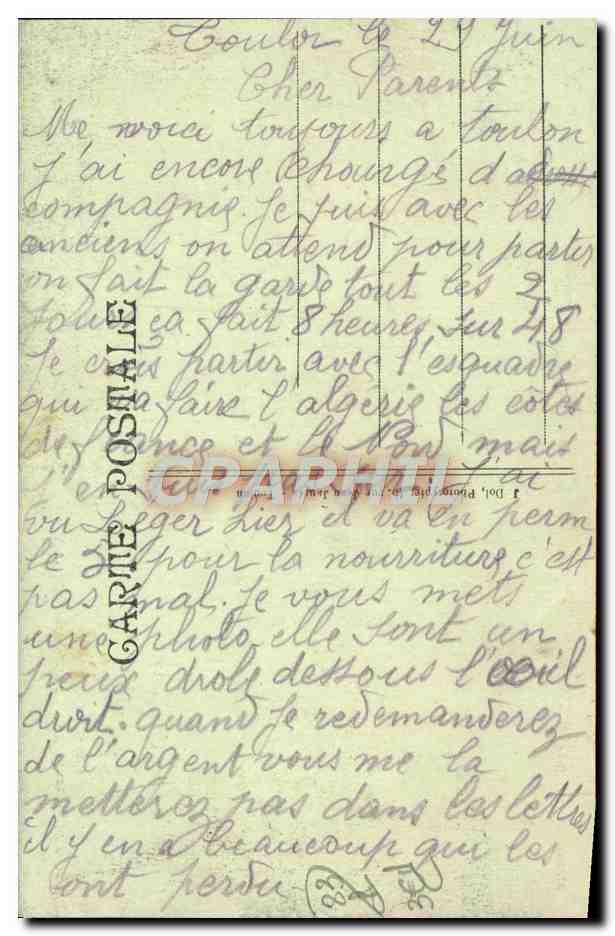 Toulon le 29 Juin
Cher Parents
Me voici toujours a toulon
J'ai encore changé d
compagnie. Je suis avec les
anciens on attend pour partir
on fait la garde tout les 2
jours ça fait 8 heures sur 48
Je crois partir avec l'esquadre
qui va faire l'algerie les côtes
de france et le Nord mais
J'ai
vu Leger hier il va en perm
le pour la nourriture c'est
pas mal. Je vous mets
une photo elle sont un
peux drole dessous l'oeuil
droit. quand Je redemanderez
de l'argent vous me la
metterez pas dans les lettres
il y en a beaucoup qui les
ont perdu
CARTE POSTALE
J. Dol, Photographe
CPAPHIL